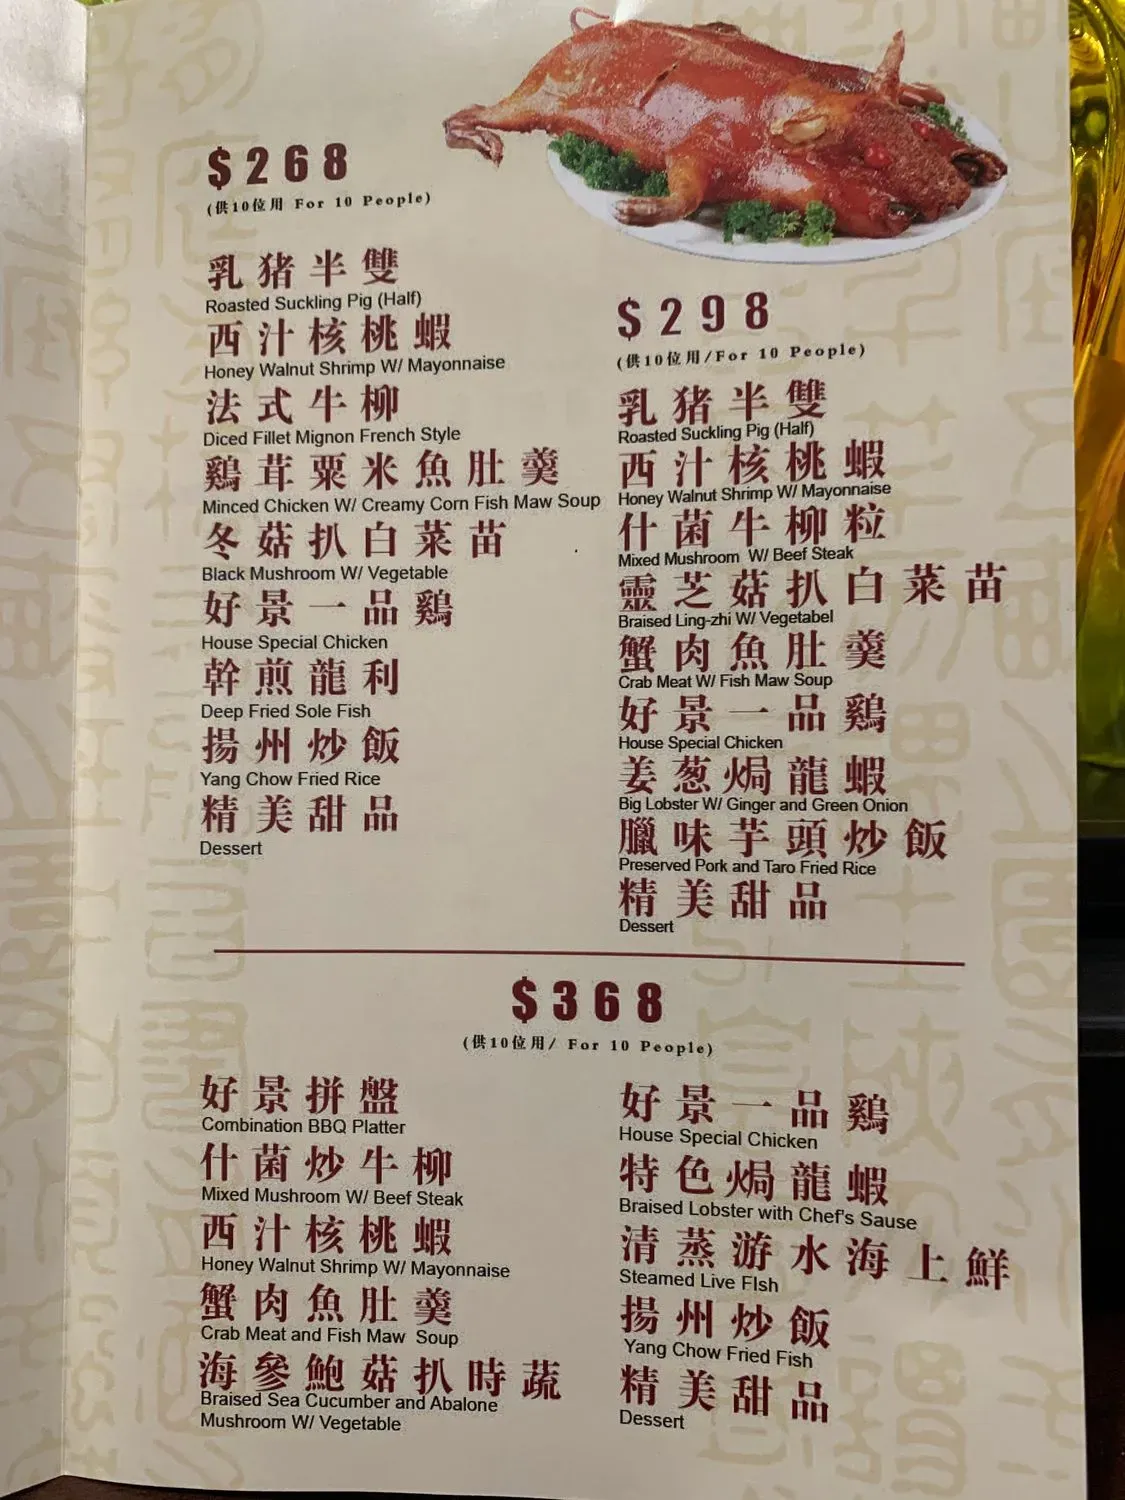 $268
(供10位用 For 10 People)
乳猪半雙
Roasted Suckling Pig (Half)
西汁核桃蝦
Honey Walnut Shrimp W/ Mayonnaise
法式牛柳
Diced Fillet Mignon French Style
鷄茸粟米魚肚羹
Minced Chicken W/ Creamy Corn Fish Maw Soup
冬菇扒白菜苗
Black Mushroom W/ Vegetable
好景一品鷄
House Special Chicken
幹煎龍利
Deep Fried Sole Fish
揚州炒飯
Yang Chow Fried Rice
精美甜品
Dessert
$298
(供10位用/For 10 People)
乳猪半雙
Roasted Suckling Pig (Half)
西汁核桃蝦
Honey Walnut Shrimp W/ Mayonnaise
什菌牛柳粒
Mixed Mushroom W/ Beef Steak
靈芝菇扒白菜苗
Braised Ling-zhi W/ Vegetabel
蟹肉魚肚羹
Crab Meat W/ Fish Maw Soup
好景一品鷄
House Special Chicken
姜葱焗龍蝦
Big Lobster W/ Ginger and Green Onion
臘味芋頭炒飯
Preserved Pork and Taro Fried Rice
精美甜品
Dessert
$368
(供10位用/ For 10 People)
好景拼盤
Combination BBQ Platter
什菌炒牛柳
Mixed Mushroom W/ Beef Steak
西汁核桃蝦
Honey Walnut Shrimp W/ Mayonnaise
蟹肉魚肚羹
Crab Meat and Fish Maw Soup
海參鮑菇扒時蔬
Braised Sea Cucumber and Abalone
Mushroom W/ Vegetable
好景一品鷄
House Special Chicken
特色焗龍蝦
Braised Lobster with Chef's Sause
清蒸游水海上鮮
Steamed Live FIsh
揚州炒飯
Yang Chow Fried Fish
精美甜品
Dessert